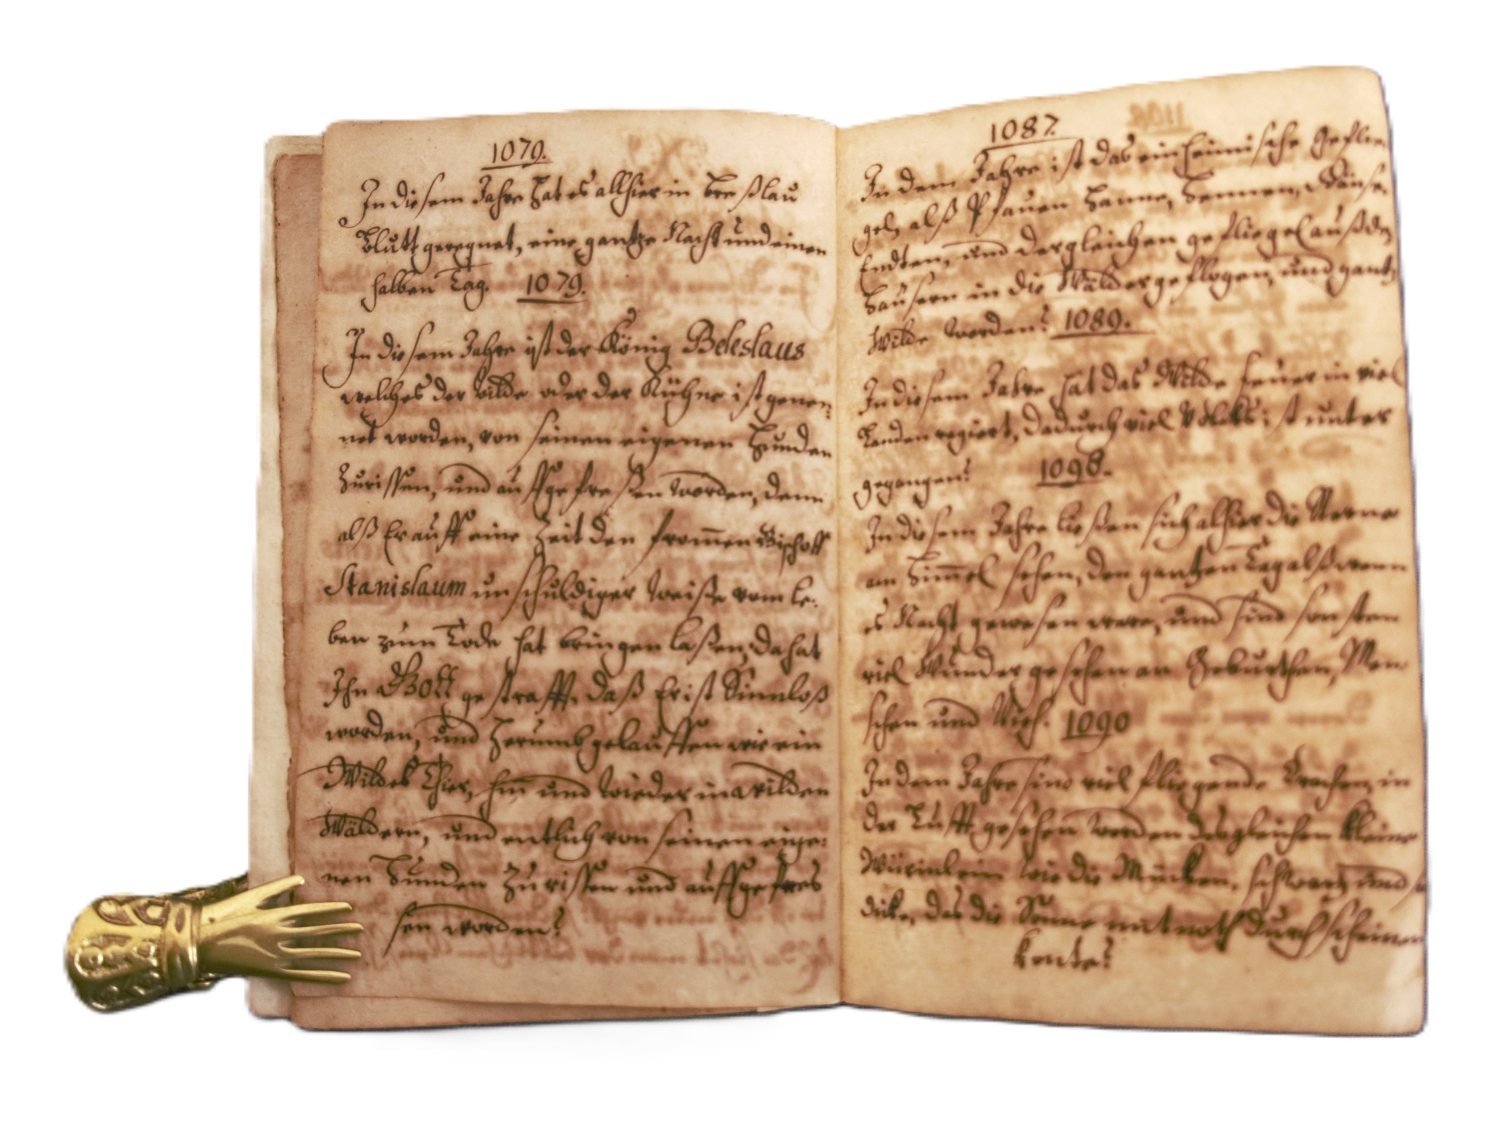 1079.
In diesem Jahre hat es allhier in Breßlau
Blutt geregnet, eine gantze Nacht und einen
halben Tag. 1079.
In diesem Jahre ist der König Boleslaus
welches der wilde oder der Kühne ist genen=
net worden, von seinen eigenen Hunden
Zurissen, und auffgefreßen worden, denn
alß Er auff eine Zeit den frommen Bischoff
Stanislaum unschuldiger weiße vom le=
ben zum Tode hat bringen laßen, da hat
Ihn Gott gestrafft. daß Er ist Sinnloß
worden, und herumb gelauffen wie ein
Wildes Thier, hin und wieder in wilden
Wäldern, und entlich von seinen eige=
nen Hunden Zurissen und auffgefres
sen worden.
1087.
In dem Jahre ist das einheimische Geflie
gel, alß Pfauen Hanne, Hennen, Gänse,
Endten, und dergleichen gefliegel auß den
Häusern in die Wälder geflogen, und gantz
Wilde worden. 1089.
In diesem Jahre hat das Wilde feuer in viel
Landen regiert, dadurch viel Volcks ist unter
gegangen. 1098.
In diesem Jahre ließen sich alhier die Sterne
am Himmel sehen, den gantzen Tag alß wenn
es Nacht gewesen were, und sind sonsten
viel Wunder gesehen an Geburthen, Men
schen und Vieh. 1090
In dem Jahre sind viel fliegende Drachen, in
der Lufft gesehen worden dergleichen kleine
Würmlein wie die Mücken, schwartz und so
dicke, das die Sonne mit noth durchscheinen
konte.